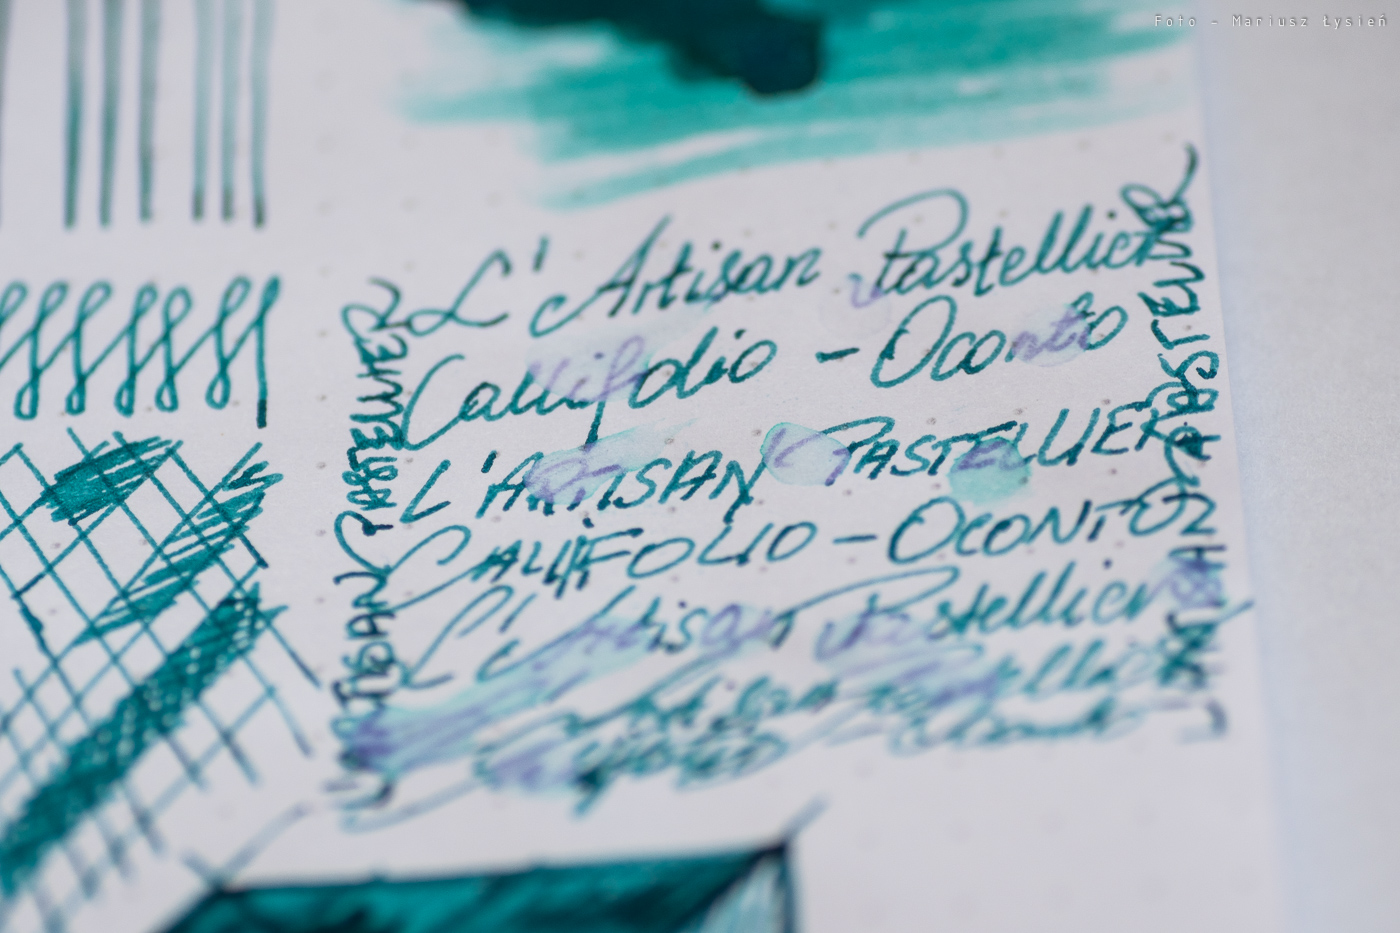 Foto - Mariusz Łysień
L'Artisan Pastellier
Callifolio - Oconto
L'ARTISAN PASTELLIER
CALLIFOLIO - OCONTO
L'Artisan Pastellier
L'ARTISAN PASTELLIER
L'ARTISAN PASTELLIER